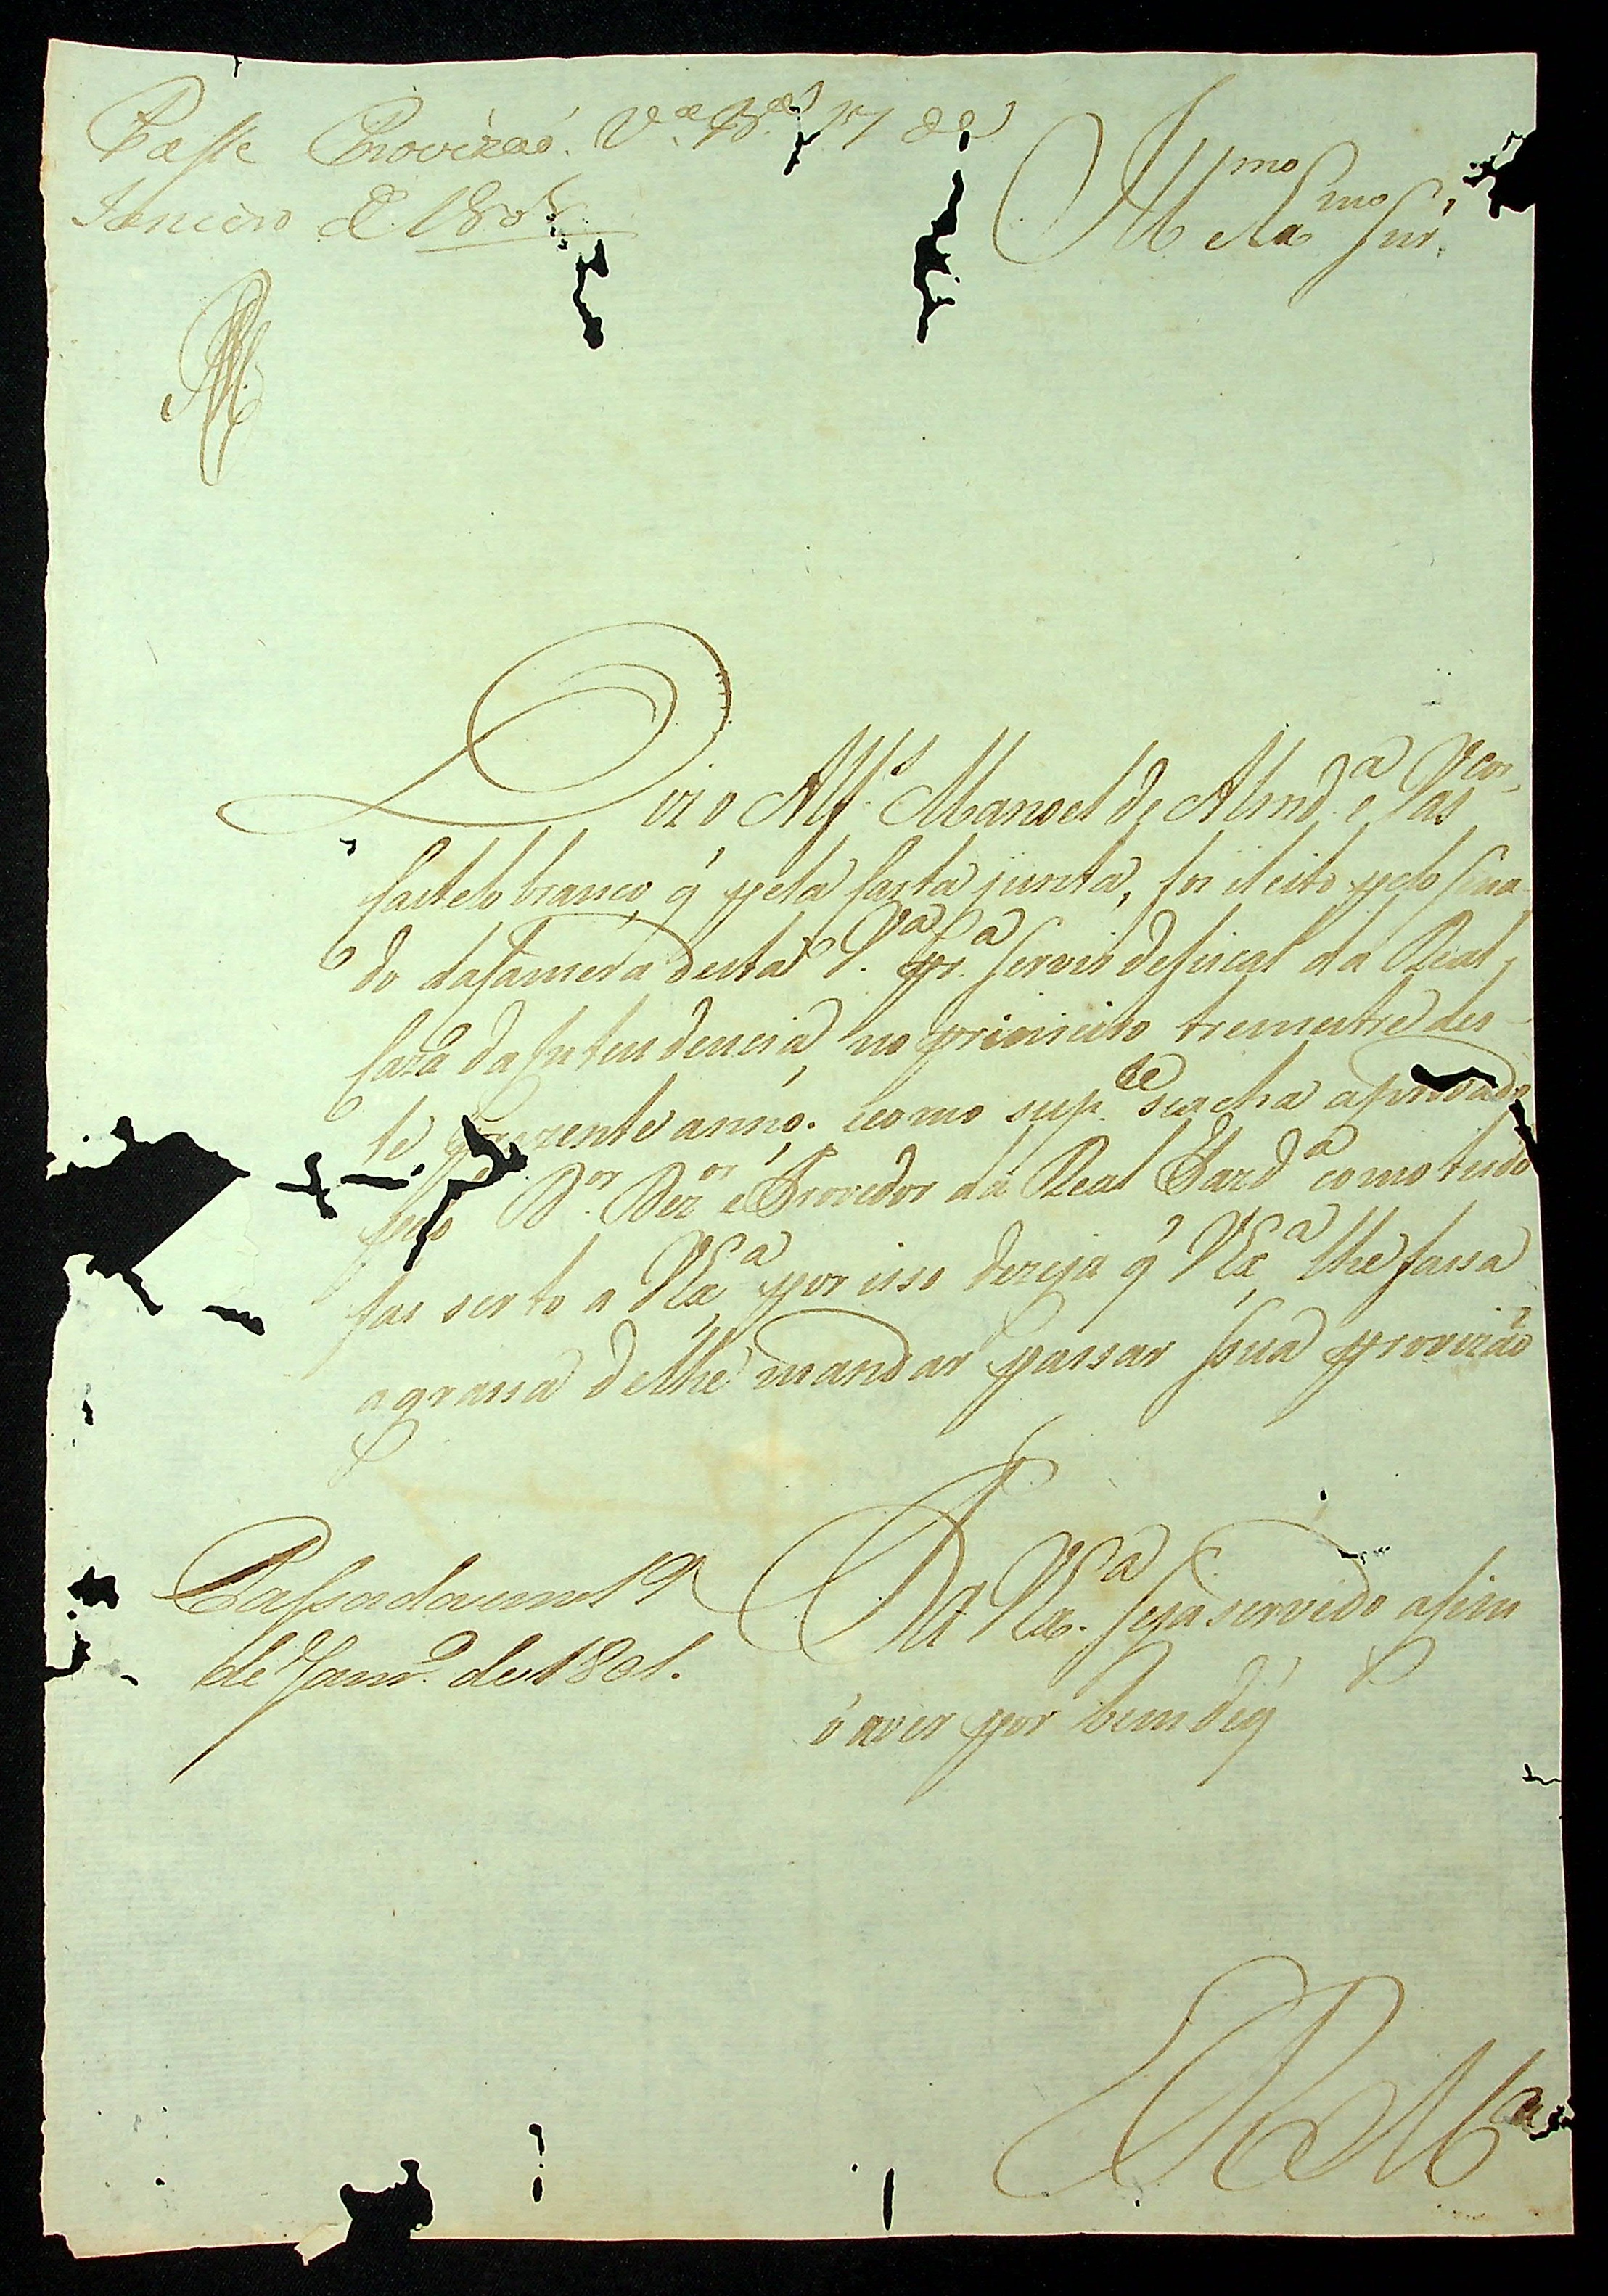 Passe Provizaõ. V.ª B.ª 17 de
Janeiro de 1801
Ill.mo e Ex.mo Snr.
Diz o Alf.s Manoel de Almd.ª e Vas
con-
Castelobranco q̃ pela Carta junta, foi ileito pelo Sena
do da Camera desta V.ª p.ª servir de fiscal da Real
Caza da Intendencia, no primeiro tremestre des-
te prezente anno. e como sup.te se acha aprovado
pelo D.or Dez.or e Provedor da Real Fazd.ª como tudo
fas serto a V Ex.ª por isso dezeja q̃ V Ex.ª lhe fassa
a grassa de lhe mandar passar sua provizão
P.ª V Ex.ª seja servido asim
o aver por bem de q̃
Passada em 19
de Janr.o de 1801.
E R M.ce